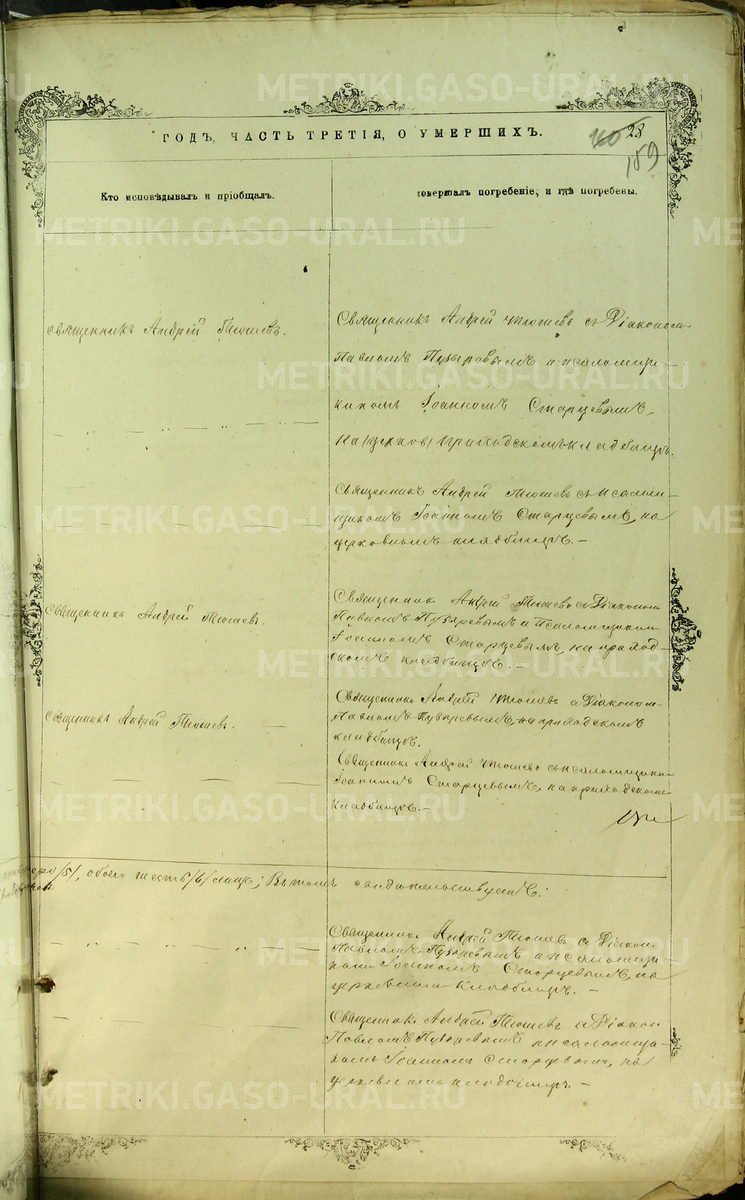 ГОДЪ, ЧАСТЬ ТРЕТІЯ, О УМЕРШИХЪ.
28
189
Кто исповѣдывалъ и пріобщалъ.
совершалъ погребеніе, и гдѣ погребены.
Священникъ Андрей Тюшевъ.
Священникъ Андрей Тюшевъ съ Діакономъ
Павломъ Пузыревымъ и псаломщи-
комъ Іоанномъ Старцевымъ,
на приходскомъ кладбищѣ.
Священникъ Андрей Тюшевъ съ псалом-
щикомъ Іоанномъ Старцевымъ, на
церковномъ кладбищѣ. –
Священникъ Андрей Тюшевъ.
Священник Андрей Тюшевъ съ Діаконом
Павломъ Пузыревымъ и Псаломщиком
Іоанномъ Старцевымъ, на приход-
скомъ кладбищѣ. –
Священникъ Андрей Тюшевъ.
Священникъ Андрей Тюшевъ съ Діакономъ
Павломъ Пузыревымъ, на приходскомъ
кладбищѣ.
Священникъ Андрей Тюшевъ съ псаломщикомъ
Іоанномъ Старцевымъ, на приходскомъ
кладбищѣ. –
/5/, обоего шесть /6/ лицъ; Въ томъ свидѣтельствуемъ:
Священникъ Андрей Тюшев с Діакон.
Павломъ Пузыревымъ и псаломщи-
комъ Іоанномъ Старцевымъ, на
церковномъ кладбищѣ. –
Священник Андрей Тюшев и Діакон
Павломъ Пузыревымъ и псаломщи-
комъ Іоанномъ Старцевым, на
церковномъ кладбищѣ. –
METRIKI.GASO-URAL.RU